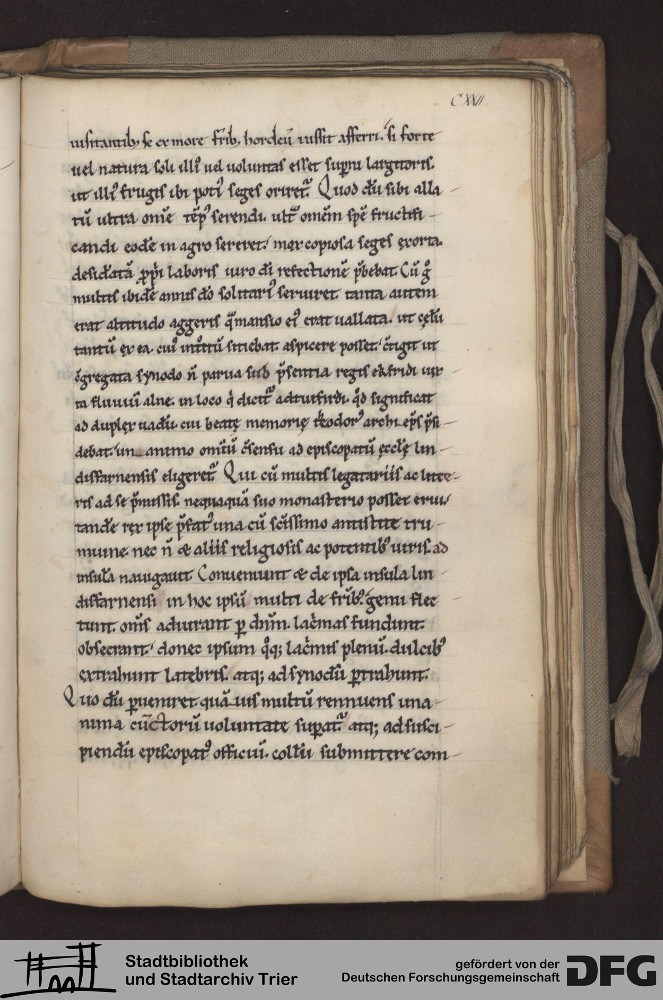 CXXII
uisitantib; se ex more frib; hordeū iussit afferri. si forte
uel natura soli illi' uel uoluntas esset supni largitoris.
ut illi' frugis ibi poti' seges oriret̄. Quod dū sibi alla
tū ultra om̄e tēp' serendi. ult̄ om̄em spē fructifi
candi eodē in agro sereret. mox copiosa seges exorta.
desid̄atā ꝓpri laboris uiro dī refectionē p̄bebat. Cū g̊
multis ibidē annis dō solitari' seruiret. tanta autem
erat altitudo aggeris q̄ mansio ei' erat uallata. ut cęlū
tantū ex ea. cui' introitū sitiebat. aspicere posset. c̄tigit ut
c̄gregata synodo n̄ parua sub p̄sentia regis ekfridi iux
ta fluuiū alne. in loco q̇ dicit̄ adtuifirdi. qd̄ significat
ad duplex uadū. cui beatę memorię theodor' archi ep̄s p̄si
debat. un animo om̄iū c̄sensu ad episcopatū ęcclę lin
disfarnensis eligeret̄. Qui cū multis legatariis ac litte
ris ad se p̄missis. nequaquā suo monasterio posset erui.
tandē rex ipse p̄fat' una cū sc̄issimo antistite tru
muine. nec n̄ & aliis religiosis ac potentib' uiris. ad
insulā nauigauit. Conueniunt & de ipsa insula lin
disfarnensi in hoc ipsū multi de frib'. genu flec
tunt. om̄s adiurant p dn̄m. lac̄mas fundunt.
obsecrant. donec ipsum qq; lac̄mis plenū. dulcib'
extrahunt latebris. atq; ad synodū ptrahunt.
Quo dū pueniret quā uis multū rennuens una
nima cūctorū uoluntate supat̄ atq; ad susci
piendū episcopat' officiū. collū submittere com
Stadtbibliothek
und Stadtarchiv Trier
gefördert von der
Deutschen Forschungsgemeinschaft
DFG